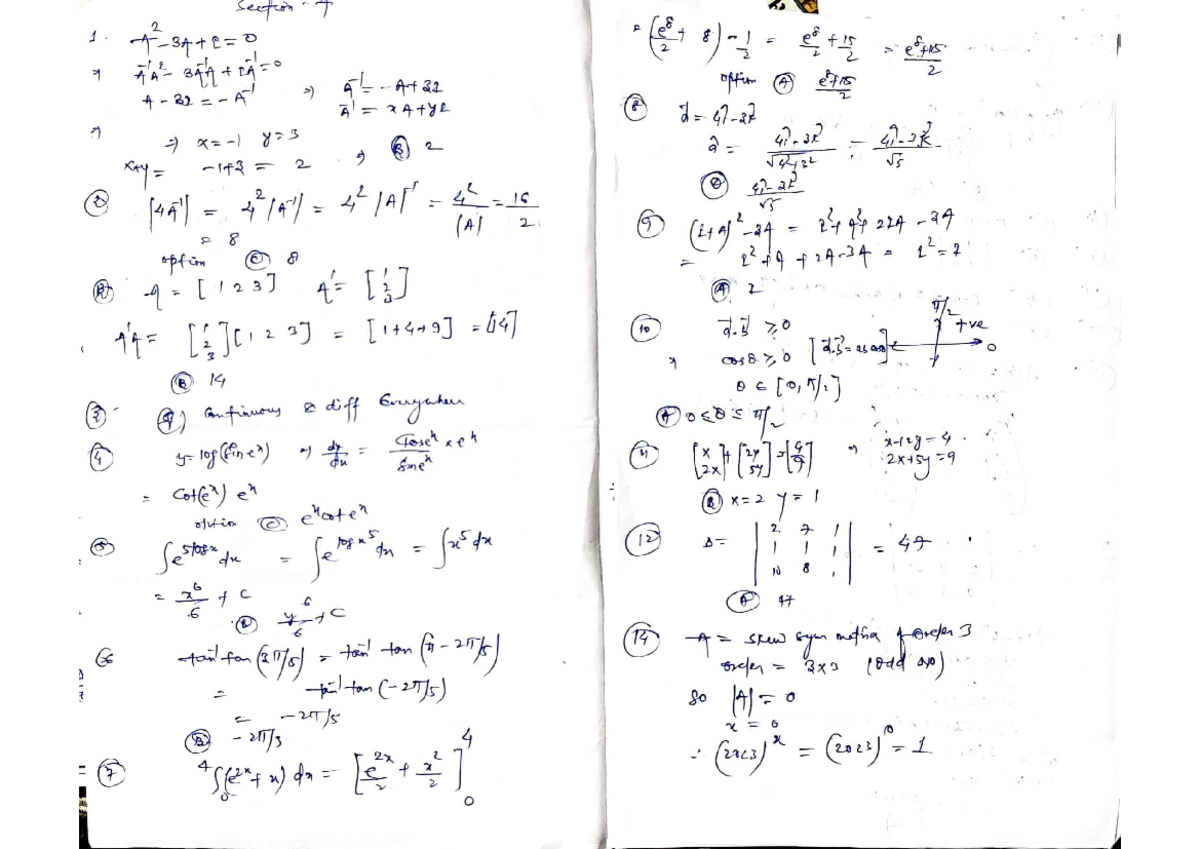 Section - A
1. A² - 3A + I = 0
⇒ A⁻¹A² - 3A⁻¹A + IA⁻¹ = 0
A - 3I = -A⁻¹ ⇒ A⁻¹ = -A + 3I
A⁻¹ = xA + yI
⇒ ⇒ x = -1 y = 3
x+y = -1+3 = 2 ⇒ (B) 2
|4A⁻¹| = 4²|A⁻¹| = 4²|A|⁻¹ = 4²/|A| = 16/2
= 8
option (C) 8
A = [1 2 3] A' = [1 2 3]
A'A = [1 2 3][1 2 3] = [1+4+9] = [14]
(B) 14
(3) Continuous & diff Everywhere
(4) y = log(sin eˣ) ⇒ dy/dx = cos eˣ × eˣ / sin eˣ
= cot(eˣ) eˣ
option (C) eˣ cot eˣ
(5) ∫e^(5logx) dx = ∫e^(log x⁵) dx = ∫x⁵ dx
= x⁶/6 + C
x⁶/6 + C
(6) tan⁻¹ tan(3π/5) = tan⁻¹ tan(π - 2π/5)
= tan⁻¹ tan(-2π/5)
= -2π/5
(B) -2π/5
(7) ₀⁴∫(e²ˣ + x) dx = [e²ˣ/2 + x²/2]₀⁴
= (e⁸/2 + 8) - 1/2 = e⁸/2 + 15/2 = e⁸+15/2
option (A) e⁸+15/2
(8)
(9) (I+A)² - 3A = I² + A² + 2IA - 3A
= I² + A + 2A - 3A = I² = I
(A) I
(10) a⃗.b⃗ ≥ 0 π/2 +ve
⇒ cosθ ≥ 0 [a⃗.b⃗ = ab cosθ] 0
θ ∈ [0, π/2]
(A) 0 ≤ θ ≤ π/2
(11) [x 2x] + [2y 5y] = [4 9] ⇒ x+2y = 4
2x+5y = 9
(B) x = 2 y = 1
(12) Δ = |2 7 1
1 1 1
10 8 1| = 47
(A) 47
(14) A = skew sym matrix of order 3
order = 3×3 (odd no)
So |A| = 0
x = 0
∴ (2023)ˣ = (2023)⁰ = 1